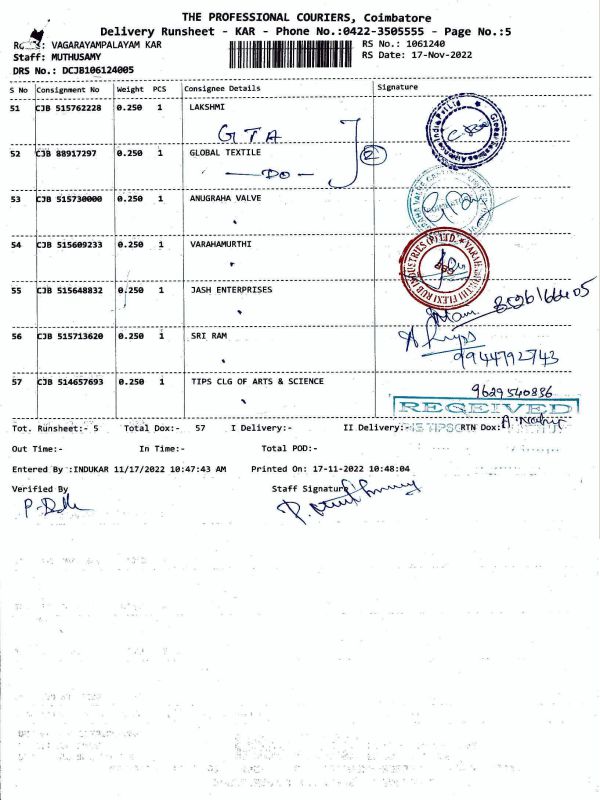 THE PROFESSIONAL COURIERS, Coimbatore
Delivery Runsheet - KAR - Phone No.:0422-3505555 - Page No.:5
VAGARAYAMPALAYAM KAR
RS No.: 1061240
Staff: MUTHUSAMY
RS Date: 17-Nov-2022
DRS No.: DCJB106124005
S No Consignment No Weight PCS Consignee Details Signature
51 CJB 515762228 0.250 1 LAKSHMI
GTA
52 CJB 88917297 0.250 1 GLOBAL TEXTILE
— DO — 2
53 CJB 515730000 0.250 1 ANUGRAHA VALVE
54 CJB 515609233 0.250 1 VARAHAMURTHI
55 CJB 515648832 0.250 1 JASH ENTERPRISES
56 CJB 515713620 0.250 1 SRI RAM
9944792743
57 CJB 514657693 0.250 1 TIPS CLG OF ARTS & SCIENCE
9629540836
RECEIVED
Tot. Runsheet:- 5 Total Dox:- 57 I Delivery:- II Delivery:- RTN Dox:
Out Time:- In Time:- Total POD:-
Entered By :INDUKAR 11/17/2022 10:47:43 AM Printed On: 17-11-2022 10:48:04
Verified By Staff Signature